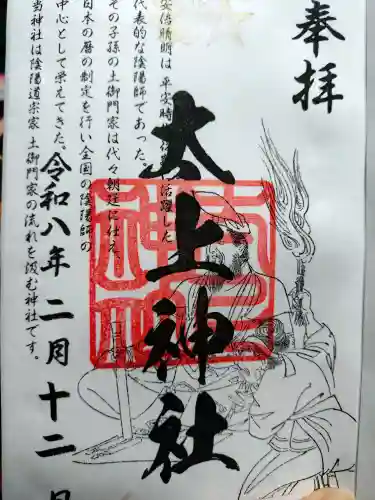 奉拝
太上神社
安倍晴明は平安時
活躍した
代表的な陰陽師であった。
その子孫の土御門家は代々朝廷に仕え、
日本の暦の制定を行い全国の陰陽師の
中心として栄えてきた。
当神社は陰陽道宗家土御門家の流れを汲む神社です。
令和八年二月十二日